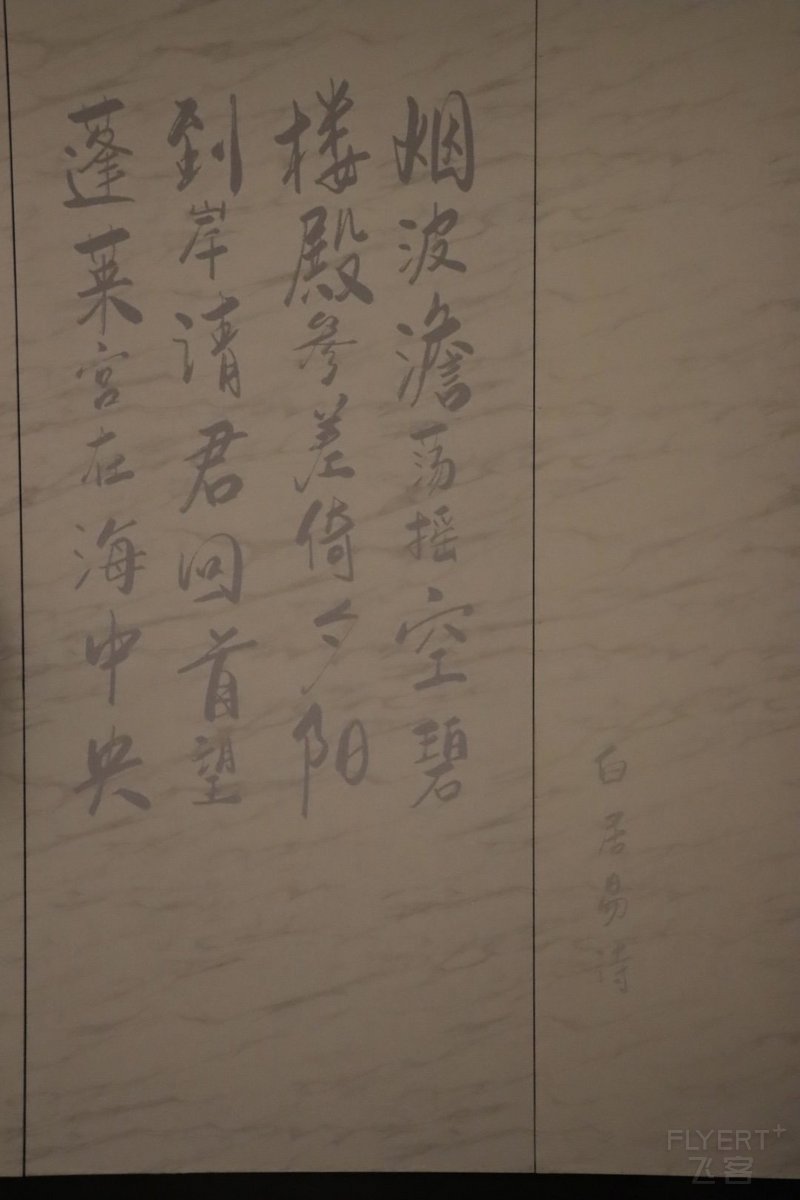 白居易诗
烟波澹荡摇空碧
楼殿参差倚夕阳
到岸请君回首望
蓬莱宫在海中央
FLYERT+
飞客